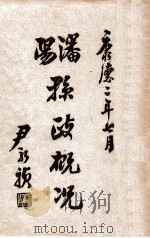 康德二年七月
瀋陽縣政概况
尹永禎